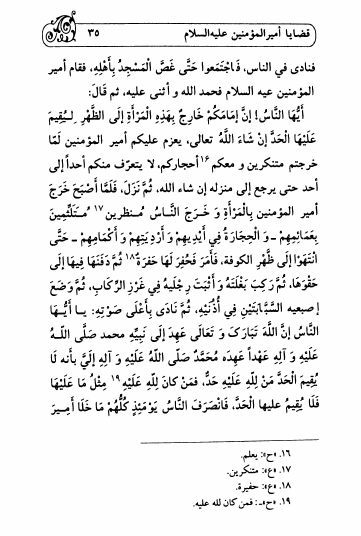 قضايا أميرالمؤمنين عليه‌السلام
٣٥
فنادى في الناس، فَاجْتَمَعوا حَتَّى غَصَّ الْمَسْجِدُ بِأَهْلِهِ، فقام أمير
المؤمنين عيه السلام فحمد الله و أثنى عليه، ثم قَالَ:
أَيُّهَا النَّاسُ! إنَّ إمَامَكُمْ خَارِجٌ بِهَذِهِ الْمَرْأَةِ إلَى الظَّهْرِ لـيُقِيمَ
عَلَيْهَا الْحَدَّ إنْ شَاءَ اللَّهُ تعالى، يعزم عليكم أمير المؤمنين لَمّا
خرجتم متنكرين و معكم١٦ أحجاركم، لا يتعرّف منكم أحداً إلى
أحد حتى يرجع إلى منزله إن شاء الله، ثُمَّ نَزَلَ، فَلَمَّا أَصْبَحَ خَرَجَ
أمير المؤمنين بِالْمَرْأَةِ وَ خَـرَجَ النَّـاسُ مُـنظرين١٧ مُـتَلَثِّمِينَ
بِعَمَائِمِهِمْ ـ وَ الْحِجَارَةُ فِي أَيْدِيهِمْ وَ أَرْدِيَتِهِمْ وَ أَكْمَامِهِمْ ـ حَتَّى
انْتَهَوْا إلَى ظَهْرِ الكوفة، فَأَمَرَ فَحُفِرَ لَهَا حَفرةٌ١٨ ثُمَّ دَفَنَهَا فِيهَا إلَى
حَقْوَهَا، ثُمَّ رَكِبَ بَغْلَتَهُ وَ أَثْبَتَ رِجْلَيهُ فِي غَرْزِ الرِّكَابِ، ثُمَّ وَضَعَ
إصبعيه السَّبَّابَتَيْنِ فِي أُذُنَيْهِ، ثُمَّ نَادَى بِأَعْلَى صَوْتِهِ: يـا أَيُّـهَا
النَّاسُ إنَّ اللَّهَ تَبَارَكَ وَ تَعَالَى عَهِدَ إلَى نَبِيِّهِ محمد صَلَّى اللَّـهُ
عَلَيْهِ وَ آلِهِ عَهْداً عَهِدَه مُحَمَّدٌ صَلَّى اللَّهُ عَلَيْهِ وَ آلِهِ إلَيَّ بأنه لَا
يُقِيمَ الْحَدَّ مَنْ لِلَّهِ عَلَيْهِ حَدٌّ، فمَنْ كَانَ لِلَّهِ عَلَيْهِ١٩ مِثْلُ مَا عَلَيْهَا
فَلَا يُقِيمُ عليها الْحَدَّ، فَانْصَرَفَ النَّاسُ يَوْمَئِذٍ كُلُّهُمْ مَا خَلَا أَمِـيرَ
١٦. «ح»: يعلم.
١٧. «ع»: متنكرين.
١٨. «ع»: حفيرة.
١٩. «ح»ـ: فمن كان لله عليه.